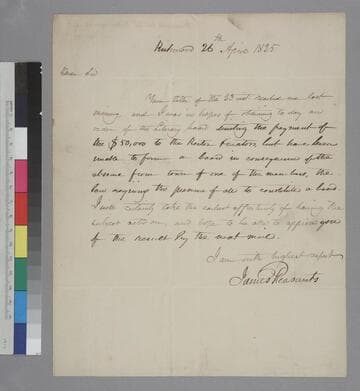 Richmond 26th April 1825
Dear Sir
Your letter of the 23 inst reached me last
evening and I was in hopes of obtaining to day an
order of the Literary board directing the payment of
the $50,000 to the Rector & visitors, but have been
unable to form a board in consequence of the
absence from town of one of the members, the
law requiring the presence of all to constitute a board.
I will certainly take the earliest opportunity of having the
subject acted on, and hope to be able to apprise you
of the result by the next mail.
I am with highest respect
James Pleasants